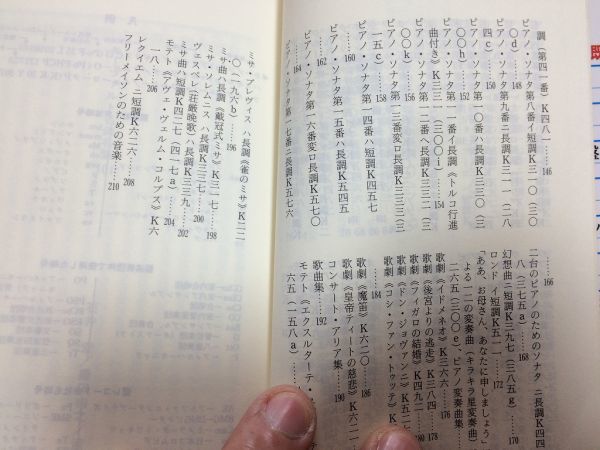 調（第四一番）K四八一 ……146
ピアノ・ソナタ第八番イ短調K三一〇（三
〇〇d）……148
ピアノ・ソナタ第九番ニ長調K三一一（二八
四c）……150
ピアノ・ソナタ第一〇番ハ長調K三三〇（三
〇〇h）……152
ピアノ・ソナタ第一一番イ長調《トルコ行進
曲付き》K三三一（三〇〇i）……154
ピアノ・ソナタ第一二番ヘ長調K三三二（三
〇〇k）……156
ピアノ・ソナタ第一三番変ロ長調K三三三（三
一五c）……158
ピアノ・ソナタ第一四番ハ短調K四五七
……160
ピアノ・ソナタ第一五番ハ長調K五四五
……162
ピアノ・ソナタ第一六番変ロ長調K五七〇
……164
ピアノ・ソナタ第一七番ニ長調K五七六
……166
二台のピアノのためのソナタ ニ長調K四四
八（三七五a）……168
幻想曲ニ短調K三九七（三八五g）……170
ロンド イ短調K五一一……172
「ああ、お母さん、あなたに申しましょう」
よる一二の変奏曲（キラキラ星変奏曲）
二六五（三〇〇e）、ピアノ変奏曲集
歌劇《イドメネオ》K三六六……176
歌劇《後宮よりの逃走》K三八四……178
歌劇《フィガロの結婚》K四九二……180
歌劇《ドン・ジョヴァンニ》K五二
歌劇《コシ・ファン・トゥッテ》K五
……184
歌劇《魔笛》K六二〇……186
歌劇《皇帝ティートの慈悲》K六二一
コンサート・アリア集……190
歌曲集……192
モテト《エクスルターテ・
六五（一五八a）
ミサ・ブレヴィス ハ長調《雀のミサ》K二二
〇（一九六b）……196
ミサ曲ハ長調《戴冠式ミサ》K三一七……198
ミサ・ソレムニス ハ長調K三三七……200
ヴェスペレ（荘厳晩歌）ハ長調K三三九……202
ミサ曲ハ短調K四二七（四一七a）……204
モテト《アヴェ・ヴェルム・コルプス》K六
一八……206
レクイエム ニ短調K六二六……208
フリーメイソンのための音楽……210